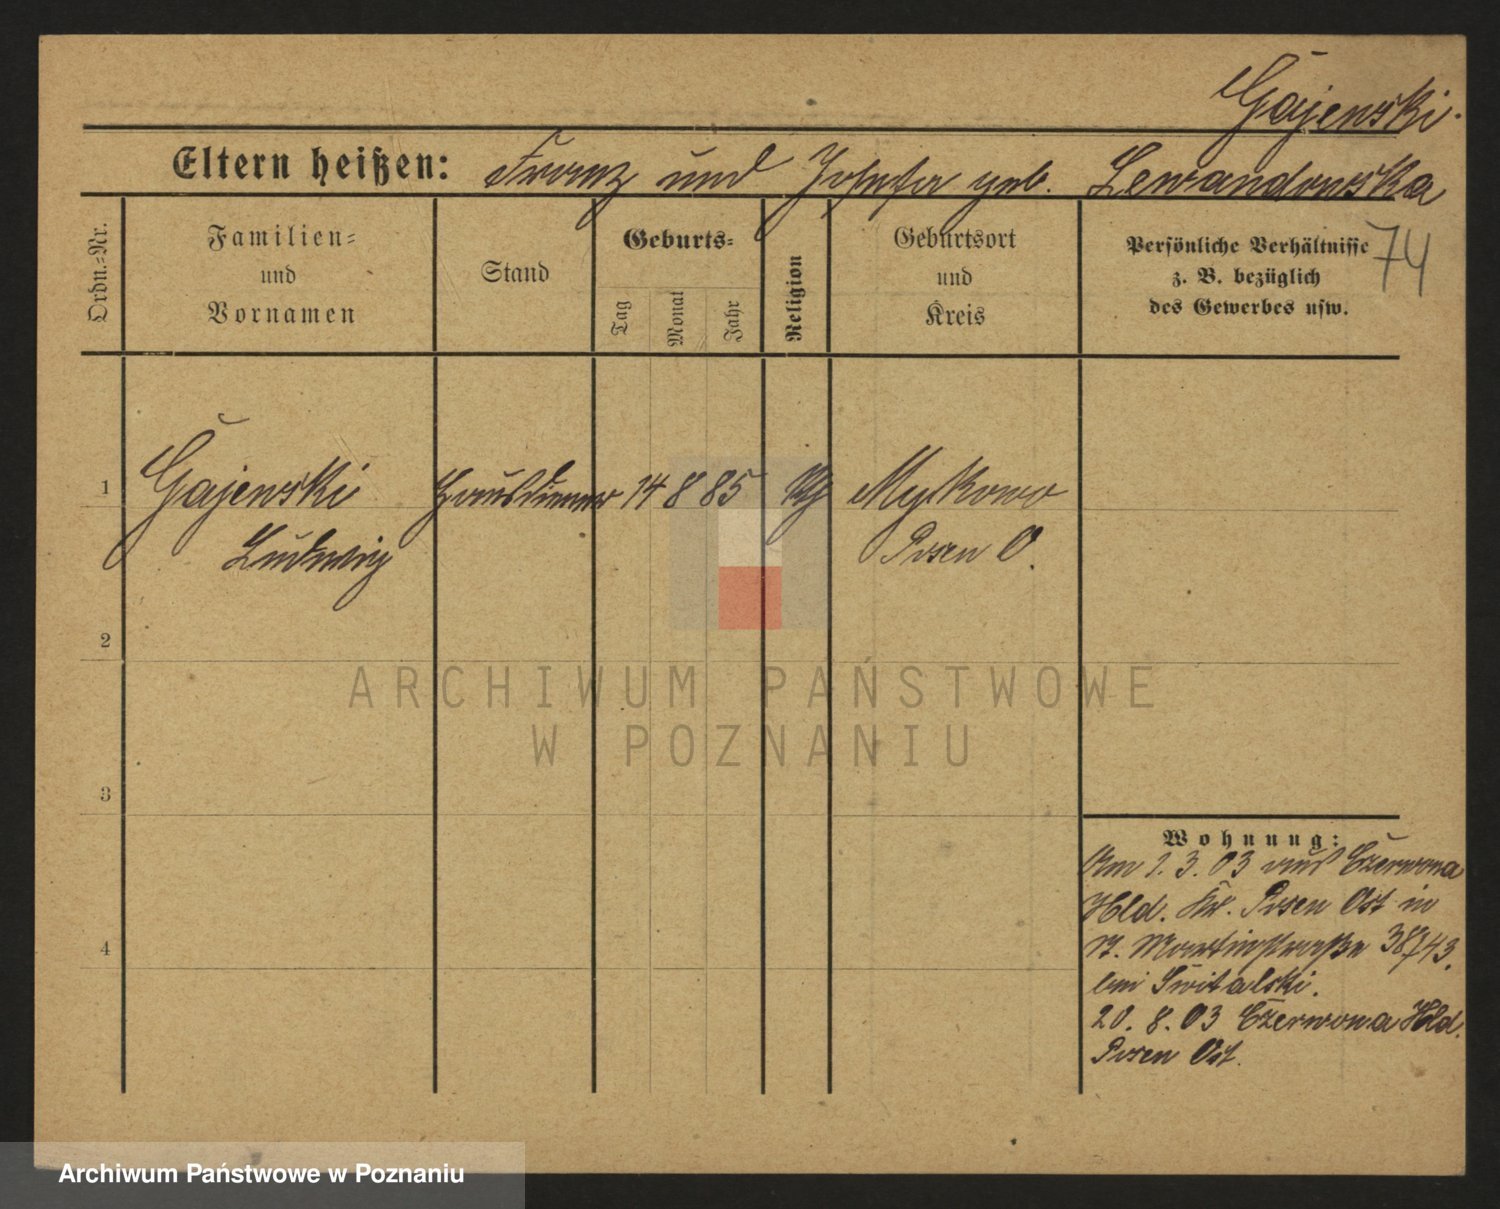 Gajewski.
Eltern heißen: Franz und Josefa geb. Lewandowska
74
Ordn.=Nr.
Familien=
und
Vornamen
Stand
Geburts=
Tag
Monat
Jahr
Religion
Geburtsort
und
Kreis
Persönliche Verhältnisse
z. B. bezüglich
des Gewerbes usw.
1
Gajewski Hausdiener 14 8 85 kth
Ludwig Posen O.
2
ARCHIWUM PAŃSTWOWE
W POZNANIU
3
4
Wohnung:
Am 1. 3. 03 aus Czerwona
Hld. Kr. Posen Ost in
St. Martinstraße 38/43.
bei Switalski.
20. 8. 03 Czerwona Hld.
Posen Ost.
Archiwum Państwowe w Poznaniu